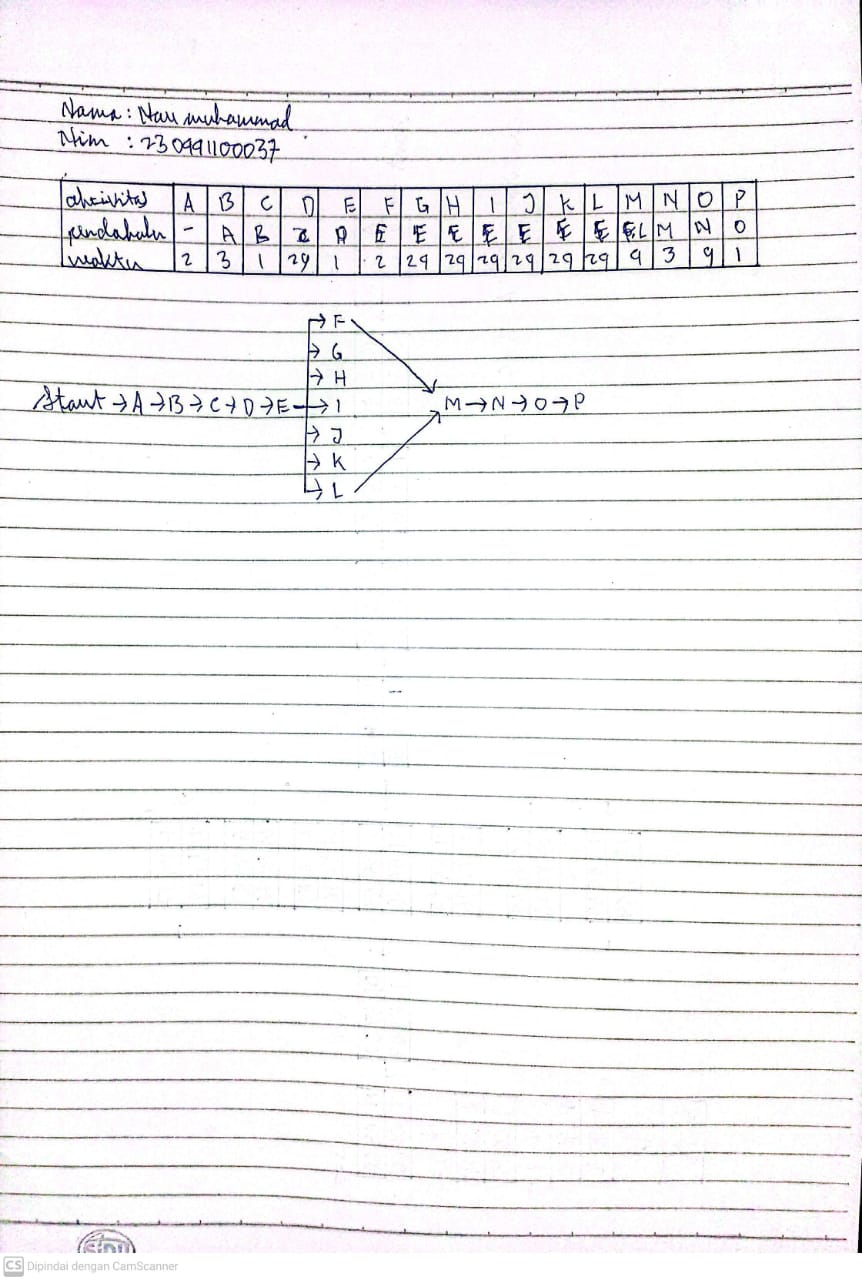 Nama : Nau muhammad
Nim : 230491100037
aktivitas A B C D E F G H I J K L M N O P
pendahulu - A B C D E E E E E E E F,L M N O
waktu 2 3 1 29 1 2 29 29 29 29 29 29 9 3 9 1
→ F
→ G
→ H
Start → A → B → C → D → E → I M → N → O → P
→ J
→ K
→ L
SIDU
CS Dipindai dengan CamScanner